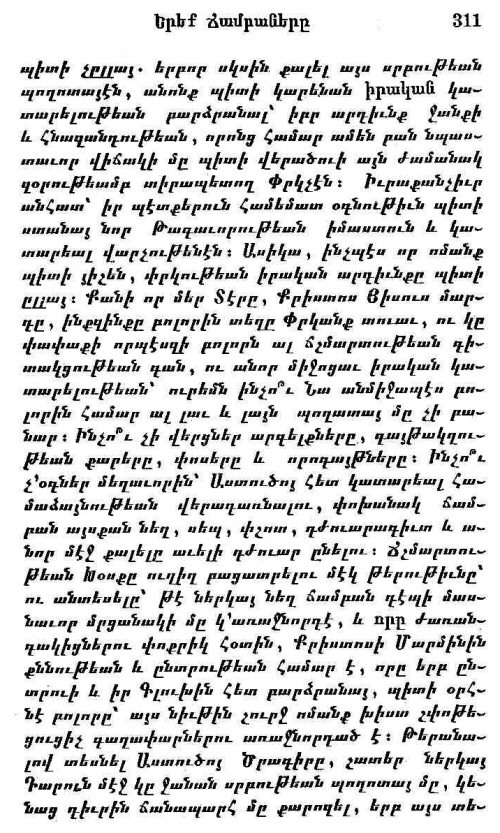 Երեք Ճամբաները 311
պիտի չըլլայ. երբոր սկսին քալել այս սրբութեան
պողոտայէն, անոնք պիտի կարենան իրական կա-
տարելութեան բարձրանալ՝ իբր արդիւնք ջանքի
և Հնազանդութեան, որոնց Համար ամեն բան նպաս-
տաւոր վիճակի մը պիտի վերածուի այն ժամանակ
զօրութեամբ տիրապետող Փրկչէն: Իւրաքանչիւր
անՀատ՝ իր պէտքերուն Համեմատ օգնութիւն պիտի
ստանայ նոր Թագաւորութեան իմաստուն և կա-
տարեալ վարչութենէն: Ասիկա, ինչպէս որ ոմանք
պիտի յիշեն, փրկութեան իրական արդիւնքը պիտի
ըլլայ: Քանի որ մեր Տէրը, Քրիստոս Յիսուս մար-
դը, ինքզինքը բոլորին տեղը Փրկանք տուաւ, ու կը
փափաքի որպէսզի բոլորն ալ ճշմարտութեան գի-
տակցութեան գան, ու անոր միջոցաւ իրական կա-
տարելութեան՝ ուրեմն ինչո՞ւ Նա անմիջապէս բո-
լորին Համար ալ լաւ և լայն պողոտայ մը չի բա-
նար: Ինչո՞ւ չի վերցներ արգելքները, գայթակղու-
թեան քարերը, փոսերը և որոգայթները: Ինչո՞ւ
չ՚օգներ մեղաւորին՝ Աստուծոյ Հետ կատարեալ Հա-
մաձայնութեան վերադառնալու, փոխանակ ճամ-
բան այսքան նեղ, սեպ, փշոտ, դժուարագիւտ և ա-
նոր մէջ քալելը աւելի դժուար ընելու: Ճշմարտու-
թեան Խօսքը ուղիղ բացատրելու մէկ թերութիւնը՝
ու անտեսելը՝ թէ ներկայ նեղ ճամբան դէպի մաս-
նաւոր մրցանակի մը կ՚առաջնորդէ, և որը ժառան-
գակիցներու փոքրիկ Հօտին, Քրիստոսի Մարմինին
քննութեան և ընտրութեան Համար է, որը երբ ըն-
տրուի և իր Գլուխին Հետ բարձրանայ, պիտի օրՀ-
նէ բոլորը՝ այս նիւթին շուրջ ոմանք խիստ շփոթե-
ցուցիչ գաղափարներու առաջնորդած է: Թերանա-
լով տեսնել Աստուծոյ Ծրագիրը, շատեր ներկայ
Դարուն մէջ կը ջանան սրբութեան պողոտայ մը, կե-
նաց դիւրին ճանապարհ մը քարոզել, երբ այս տե-